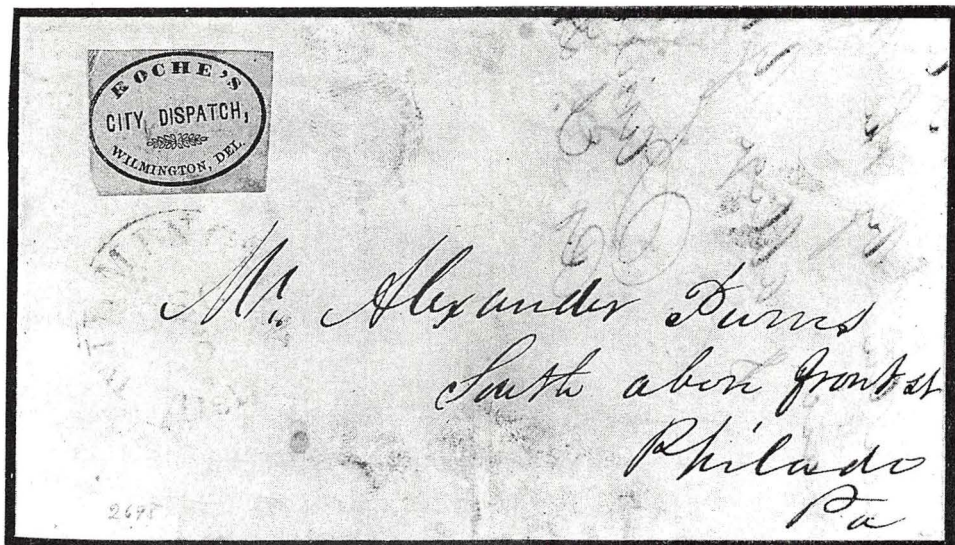 ROCHE'S
CITY DISPATCH,
WILMINGTON, DEL.
Mr. Alexander Purves
South above front st
Philada
Pa
2698